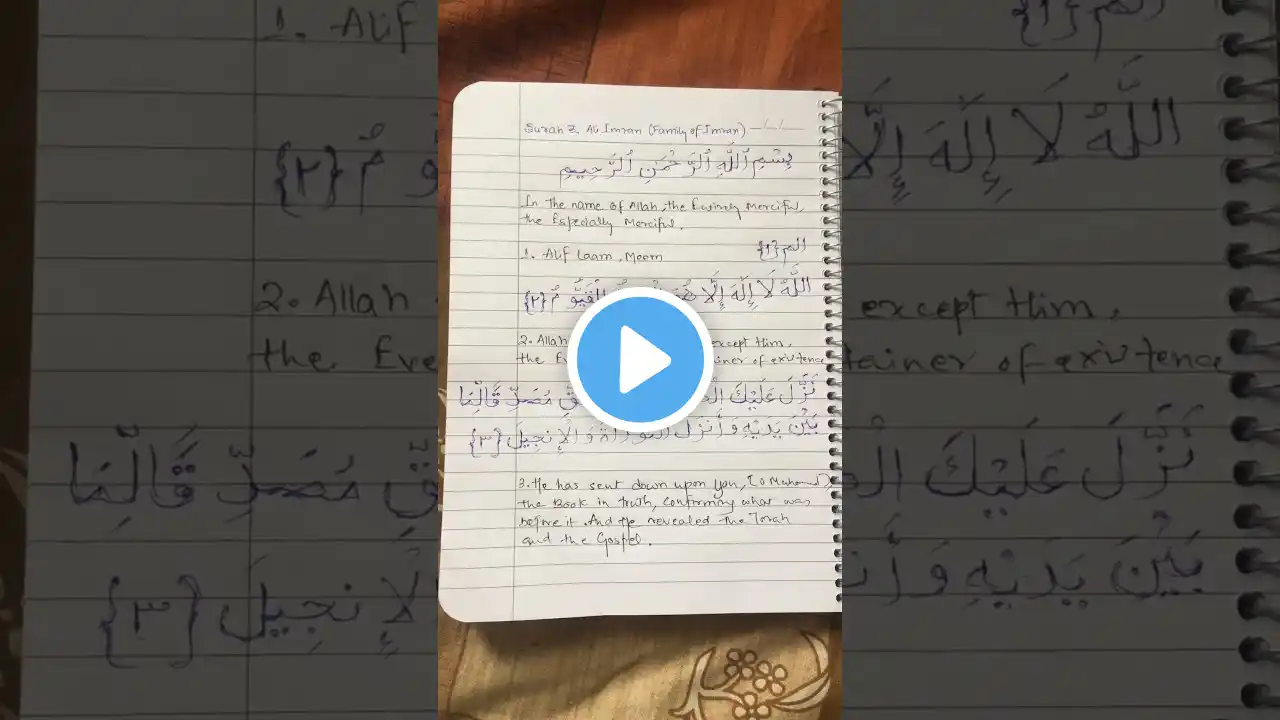 Surah 3. Ali Imran (Family of Imran)
بِسْمِ ٱللَّهِ ٱلرَّحْمَنِ ٱلرَّحِيمِ
In the name of Allah, the Entirely Merciful,
the Especially Merciful.
1. Alif Laam, Meem
الم {١}
ٱللَّهُ لَا إِلَٰهَ إِلَّا هُوَ الْقَيُّومُ {٢}
2. Allah except Him,
the Ever tainer of existence
نَزَّلَ عَلَيْكَ مُصَدِّقًالِّمَا
بَيْنَ يَدَيْهِ وَأَنزَلَ التَّوْرَاةَ وَالْإِنجِيلَ {٣}
3. He has sent down upon you,
the Book in truth, confirming what was
before it. And He revealed the Torah
and the Gospel.